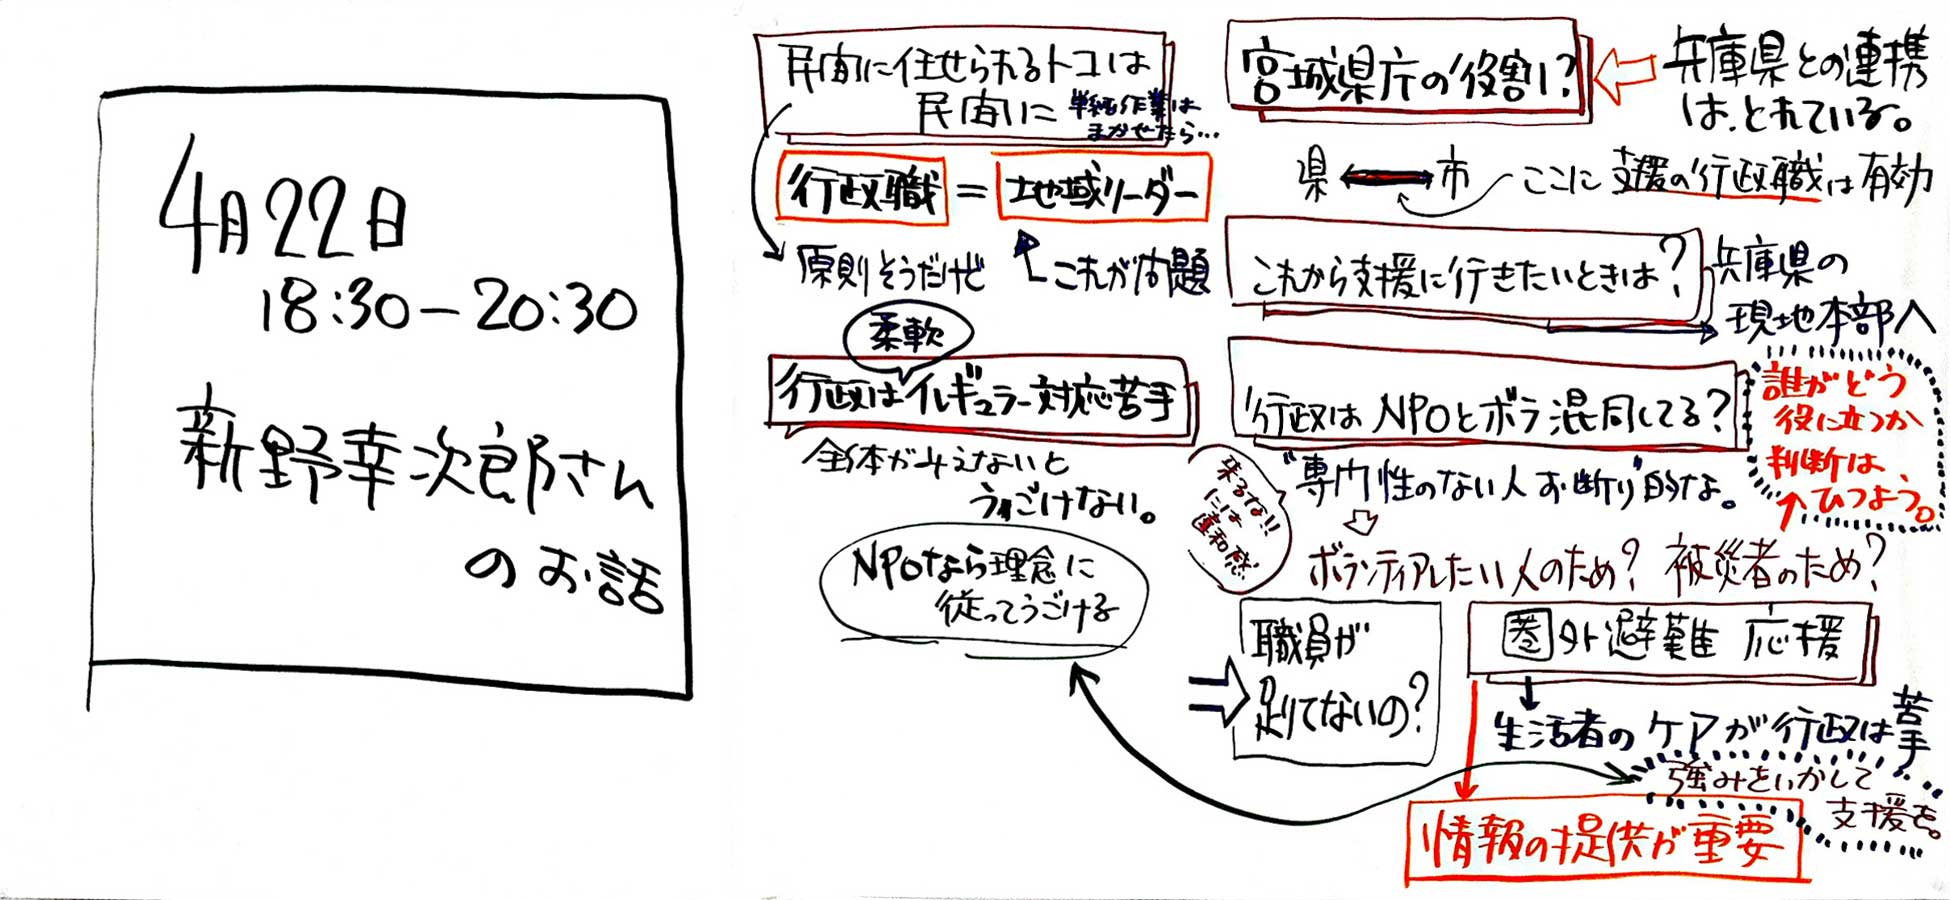 4月22日
18:30−20:30
新野幸次郎さん
のお話
民間に任せられるトコは
民間に
単純作業は
まかせたら…
行政職＝地域リーダー
原則そうだけど
これが問題
柔軟
行政はイレギュラー対応苦手
全体がみえないと
うごけない。
NPOなら理念に
従ってうごける
宮城県庁の役割？
兵庫県との連携
は、とれている。
県 市
ここに支援の行政職は有効
これから支援に行きたいときは？
兵庫県の
現地本部へ
行政はNPOとボラ混同してる？
誰がどう
役に立つか
判断は
ひつよう。
来るな!!
には
違和感
“専門性のない人お断り”的な。
ボランティアしたい人のため？ 被災者のため？
職員が
足りてないの？
圏外避難 応援
生活者のケアが行政は苦手
強みをいかして
支援を。
情報の提供が重要